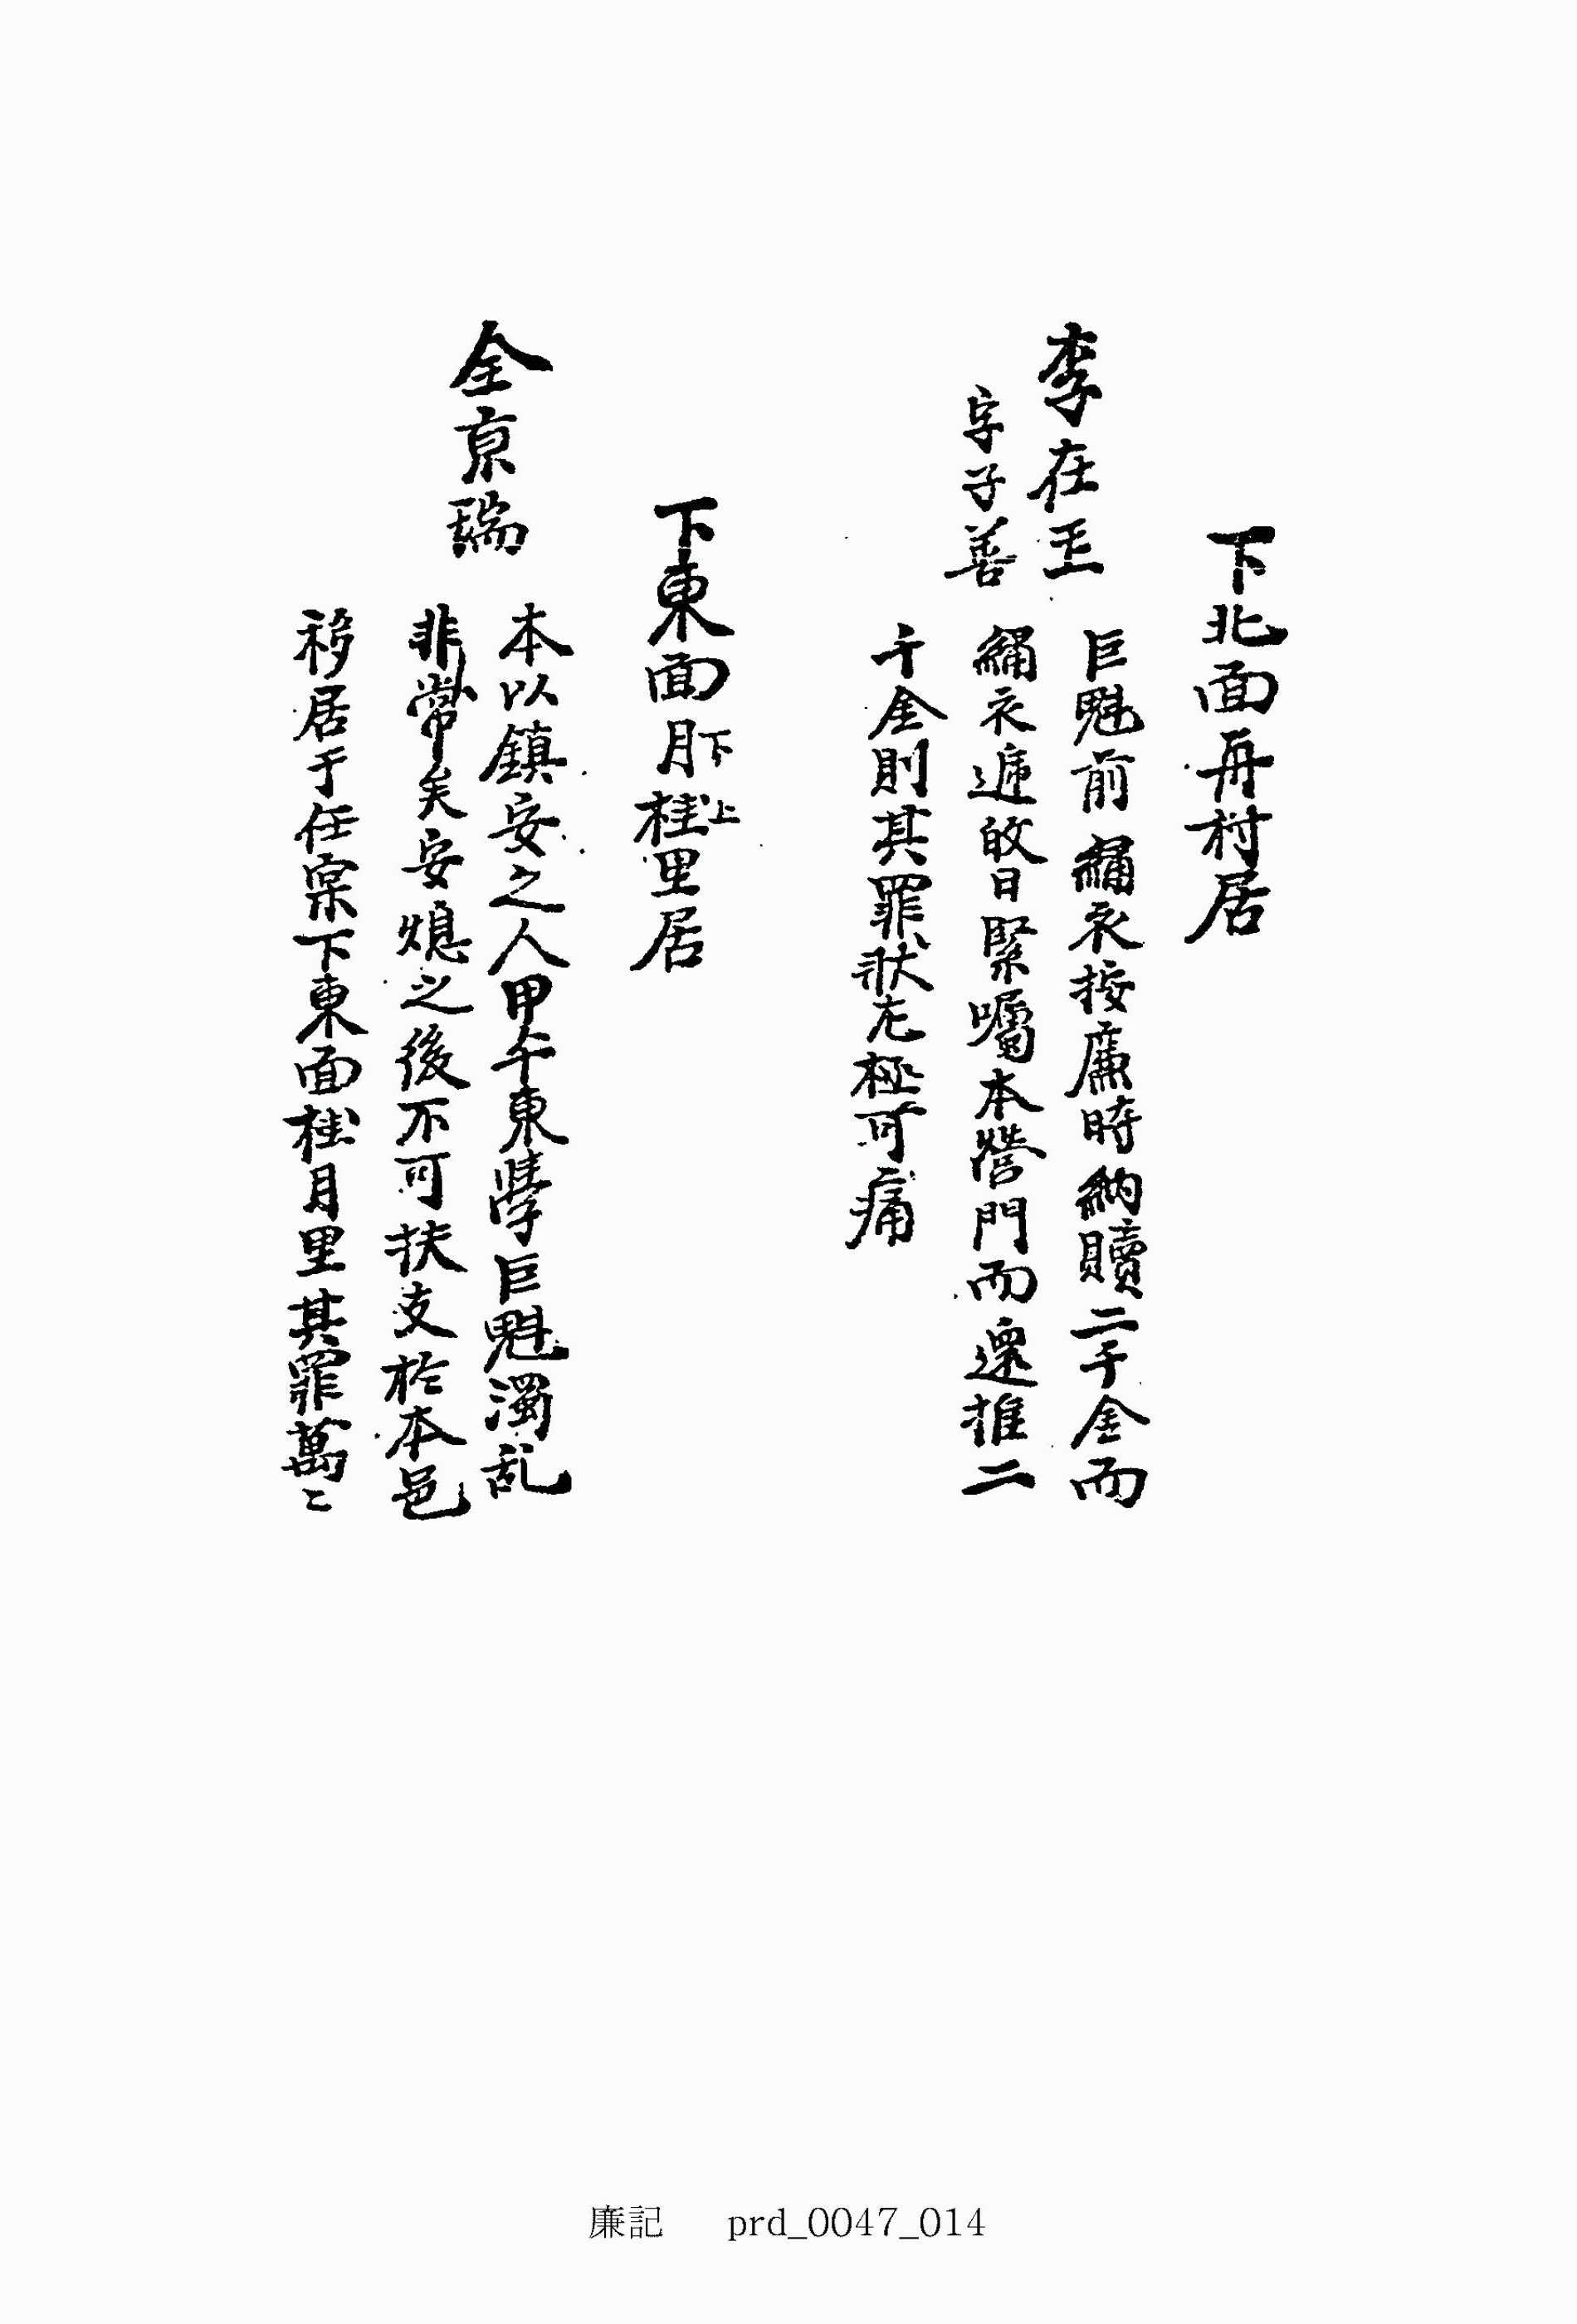 下北面再村居
李在玉
字子善
巨魁前繡衣按廉時納贖二千金而
繡衣遞改日緊囑本營門而還推二
千金則其罪狀尤極可痛
下東面月下桂上里居
全京瑞
本以鎭安之人甲午東學巨魁濁乱
非常矣安熄之後不可扶支於本邑
移居于任案下東面桂月里其罪萬〻
廉記 prd_0047_014